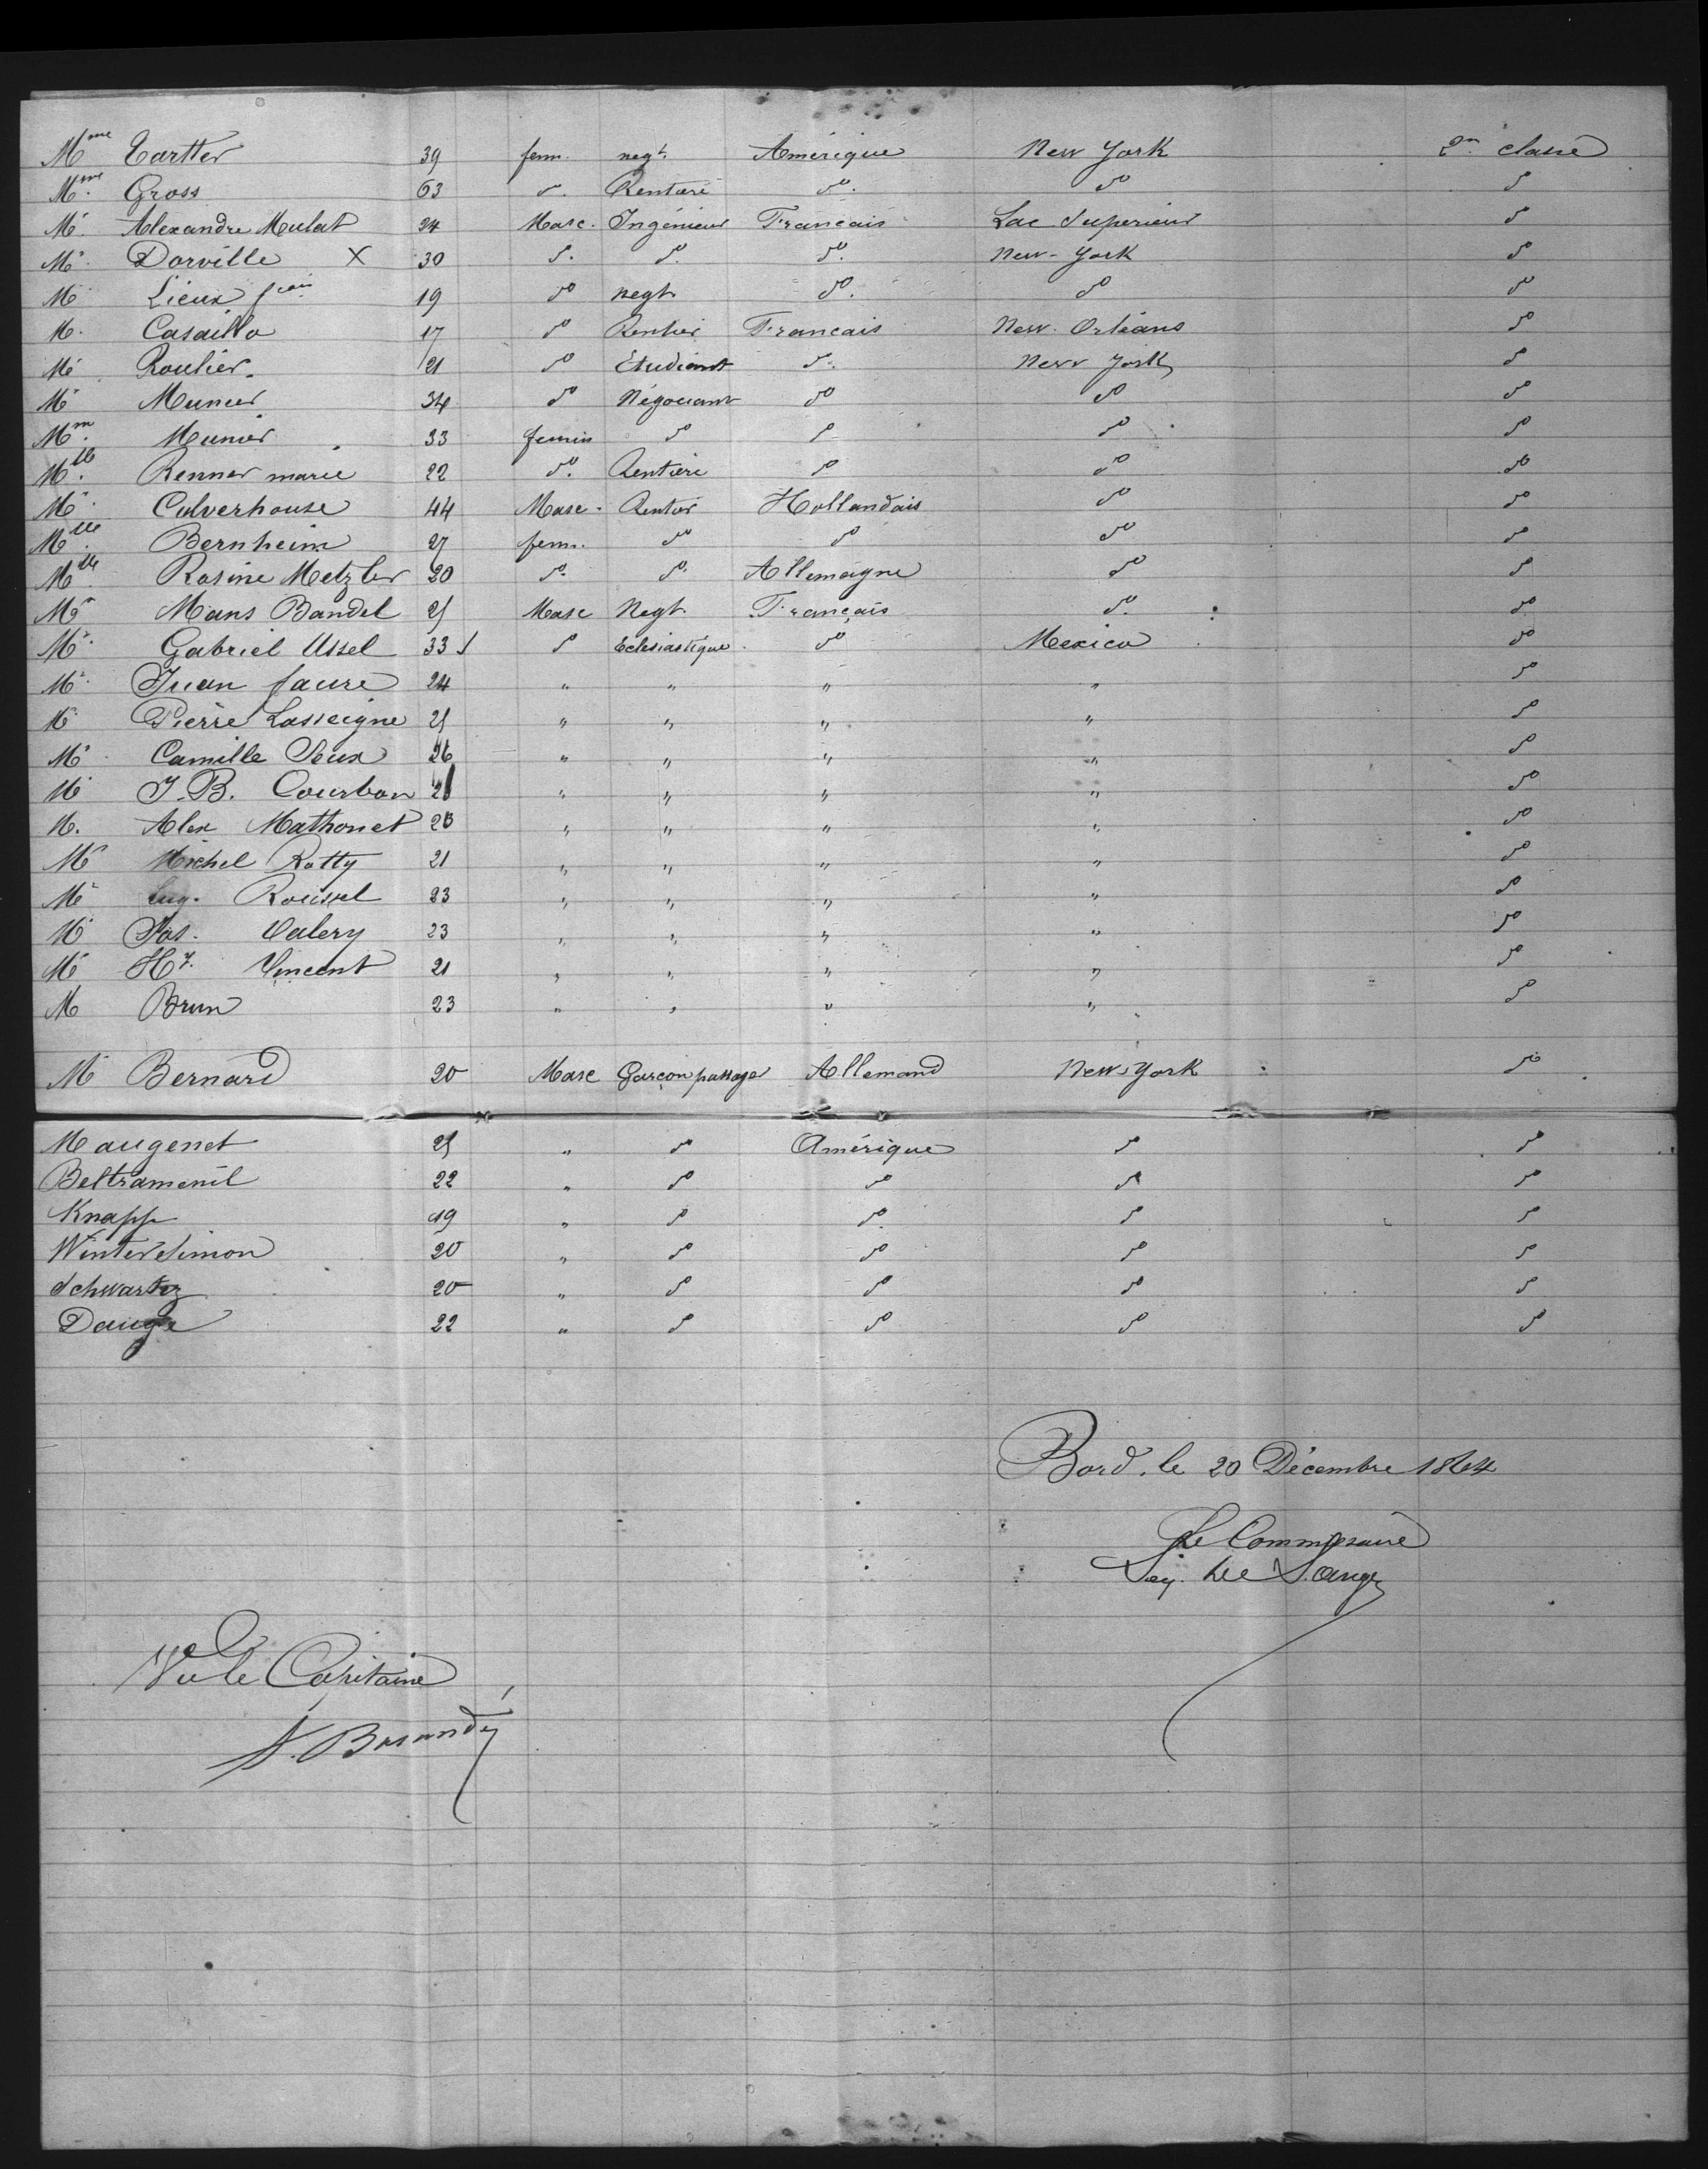 Mme Tartter 39 fem. negt. Amérique New York 2me classe
Mme Gross 63 do. Rentière do. do do
Mr. Alexandre Mulat 24 Masc. Ingénieur Francais Lac Superieur do
Mr. Dorville X 30 do. do. do. New-York do
Mr Lieux 19 do negt. do. do do
M. Casaillo 17 do Rentier Francais New-Orléans do
Mr Roulier. 21 do Etudiant do. New York do
Mr Munier 34 do Négociant do do do
Mme. Munier 33 femin do do do do
Mlle. Renner marie 22 do. Rentière do do do
Mr. Culverhouse 44 Masc. Rentier Hollandais do do
Mlle. Bernheim 27 fem. do do do do
Mlle. Rosine Metzler 20 do. do. Allemagne do do
Mr Mans Bandel 25 Masc Negt. Français do. do
Mr. Gabriel Ussel 33 do Eclesiastique do Mexico do
Mr. Juan faure 24 " " " " do
Mr Pierre Lasseigne 25 " " " " do
Mr Camille Seux 26 " " " " do
Mr J.B. Courbon " " " " do
M. Alex Mathonet " " " " do
Mr Michel Ratty 21 " " " " do
Mr Eug. Roussel 23 " " " " do
Mr Jos. Valery 23 " " " " do
Mr Hy. Vincent 21 " " " " do
M Brun 23 " " " " do
M Bernard 20 Masc Garçon passager Allemand New York do
Maugenet 25 " do Amérique do do
Beltramenil 22 " do do do do
Knapp 19 " do do. do do
Winter Simon 20 " do do do do
Schwartz 20 " do do do do
Dauge 22 " do do do do
Bord. le 20 Décembre 1864
Le Commissaire
Vu le Capitaine